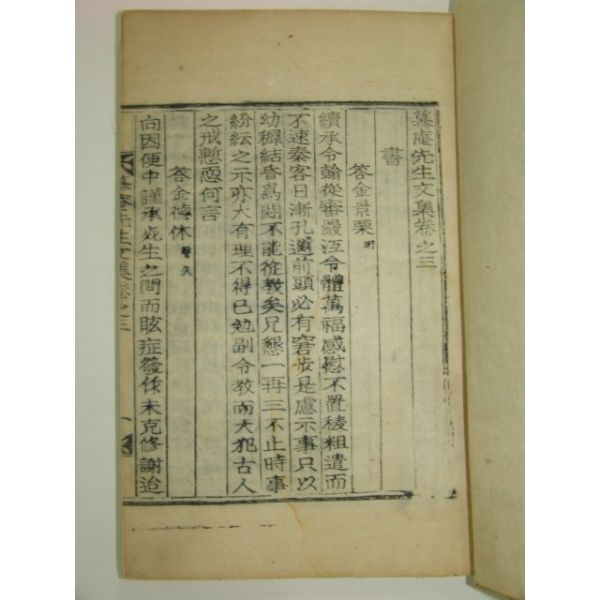 慕庵先生文集卷之三
書
答金景栗
續承令翰從審嚴沍令體萬福感慰不置稜粗遣而
不速秦客日漸孔邇前頭必有窘步是慮示事只以
幼穉結昏爲悶不能從敎矣兄懇一再三不止時事
紛紜之示亦大有理不得已勉副令敎而大犯古人
之戒慙恧何言
答金德休 聲久
向因便中謹承兄生之問而眩症發作未克修謝治